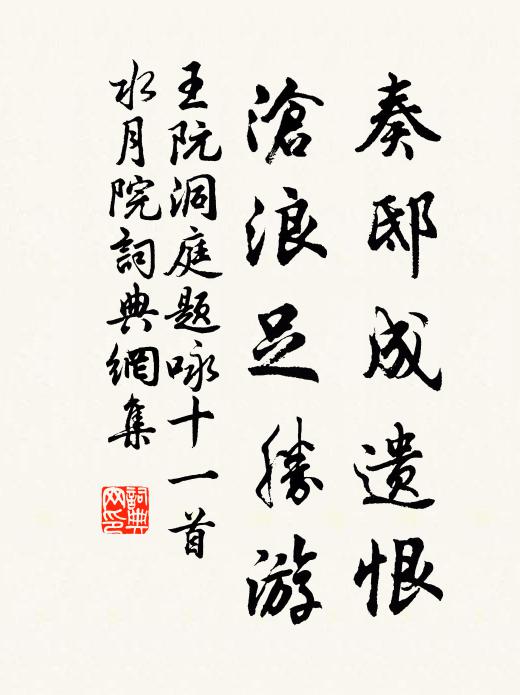 奏邸成遗恨
滄浪足勝游
王阮洞庭题咏十一首
水月院詞典網集
詞典网印